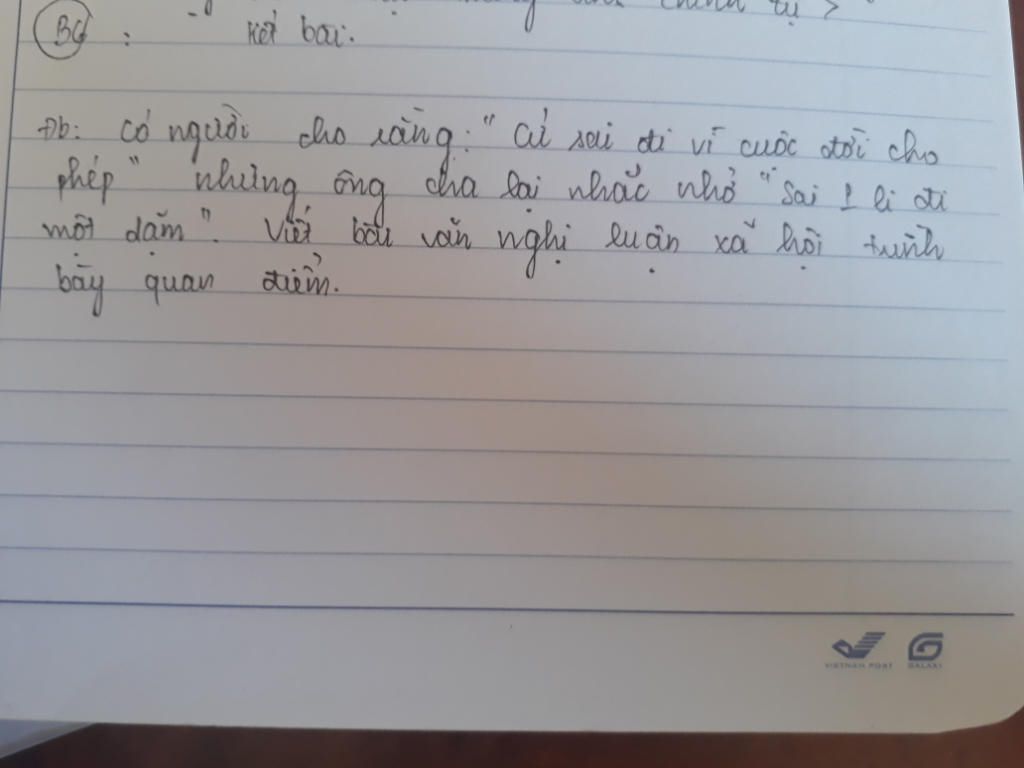 chính tự >
BG : kết bài.
Đb: Có người cho rằng: "Cứ sai đi vì cuộc đời cho
phép" nhưng ông cha lại nhắc nhở "Sai 1 li đi
một dặm". Viết bài văn nghị luận xã hội trình
bày quan điểm.
VIETNAM POST GALAXY